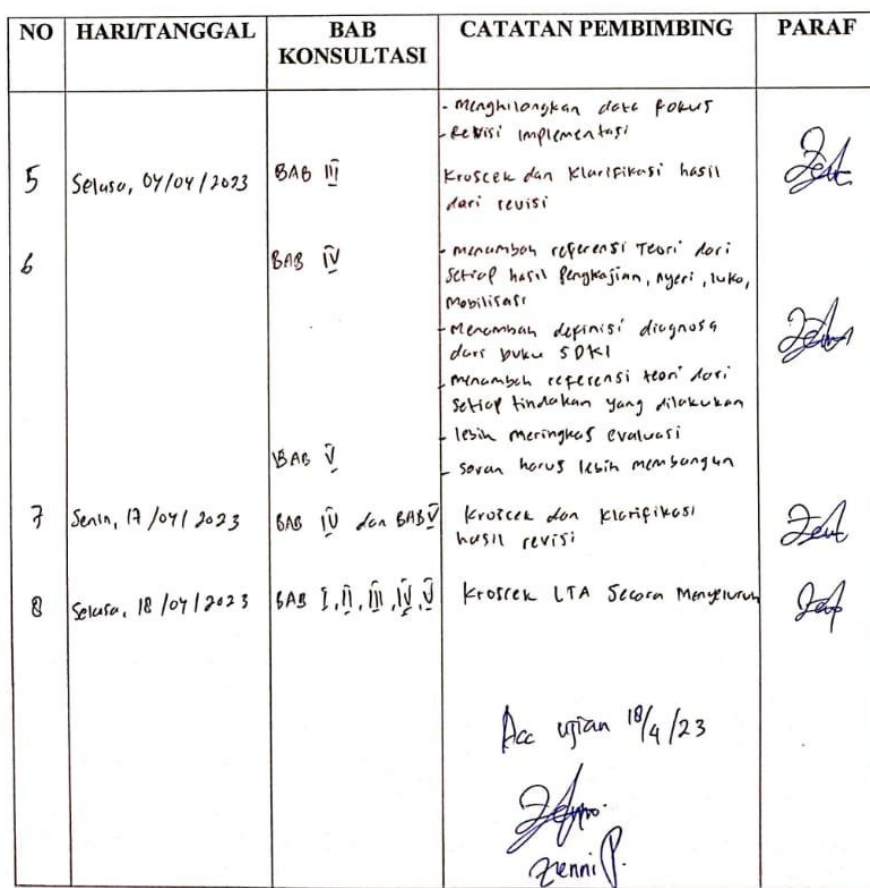 NO HARI/TANGGAL BAB KONSULTASI CATATAN PEMBIMBING PARAF
- Menghilangkan data fokus
- Revisi implementasi
5 Selasa, 04/04/2023 BAB III Kroscek dan klarifikasi hasil
dari revisi
6 BAB IV - menambah referensi Teori dari
setiap hasil pengkajian, nyeri, luka,
mobilisasi
- Menambah definisi diagnosa
dari buku SDKI
- menambah referensi teori dari
setiap tindakan yang dilakukan
- lebih meringkas evaluasi
BAB V
- saran harus lebih membangun
7 Senin, 17/04/2023 BAB IV dan BAB V Kroscek dan klarifikasi
hasil revisi
8 Selasa, 18/04/2023 BAB I, II, III, IV, V Kroscek LTA Secara Menyeluruh
Acc ujian 18/4/23
Zenni P.